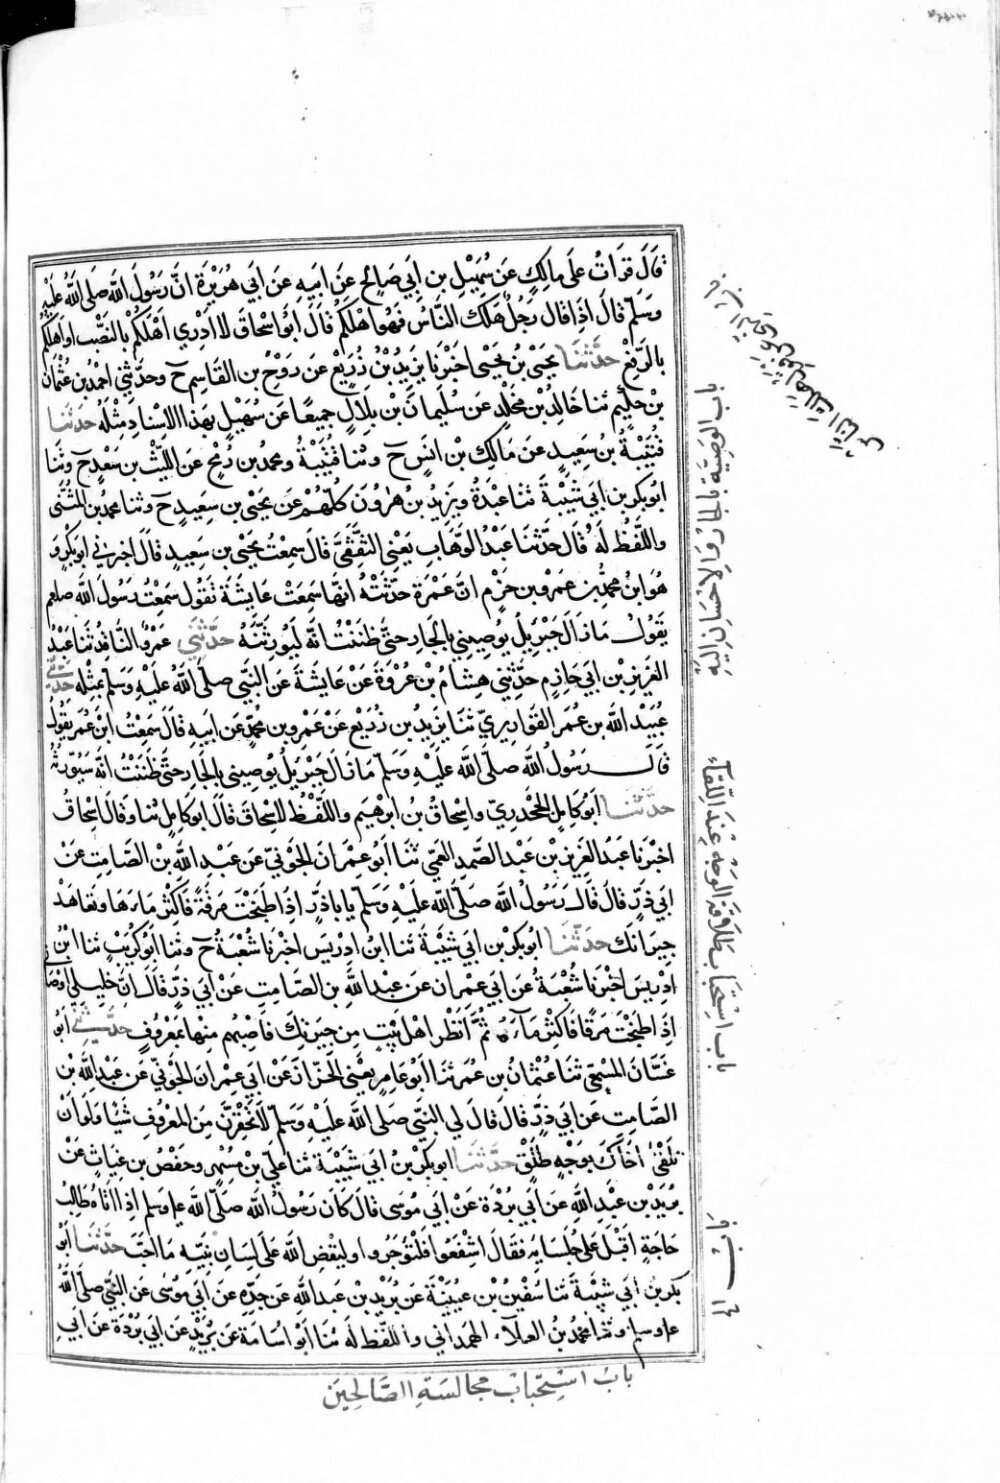 قَالَ قَرَاتُ عَلَى مالِكٍ عَن سُهَيْلِ بنِ اَبي صَالحٍ عَن اَبيهِ عَن اَبي هُرَيْرَةَ انَّ رَسُولَ الله صَلى الله عَلَيْهِ
وَسَلّم قَالَ اذا قال رَجُلٌ هَلَكَ النَّاسُ فهُوا هْلَكَهُم قَالَ ابُو اسْحاقَ لا اَدْرِي اَهْلَكَهُمْ بالنَصْب اَو اَهْلَكُهُمْ
بالرَفْع حَدَّثَنَا يحيَى بْن يَحْيى اخبَرنَا يزيدُ بْنُ زُرَيْعٍ عَن رَوْحُ بن القَاسِم ح وحَدثني احمدُ بن عثمان
بْنِ حكِيم ثنا خَالِدُ بْن مَخلَدٍ عَن سُلَيمانَ بْنِ بِلَالٍ جميعًا عَن سُهَيْلٍ بهَذا الاسْنادِ مِثْلَهُ حَدثنا
قُتَيْبَةُ بنُ سَعِيدٍ عَن مَالِكِ بن انسٍ ح وثنا قُتَيْبَةُ ومحمد بن رُمحٍ عن اللَيْث بن سَعْدٍ ح وثنا
ابُو بكر بن ابي شَيْبَةَ ثنا عبْدَةُ ويزيدُ بنُ هَرُونَ كُلّهُمْ عَن يحيَى بن سَعِيدٍ ح وثنا محمد بن المُثنَّى
واللَفْظُ لَهُ قال حَدَّثَنا عَبْدُ الوهَّابِ يَعْنِي الثَّقَفيَّ قَالَ سَمِعْتُ يحيى بن سَعِيدٍ قَالَ اخبرني ابو بكرٍ و
هُوَ ابنُ محمدِ بن عَمرو بن حَزْمٍ انَّ عَمْرَة حَدّثَتْهُ انها سَمِعَتْ عَايشَةَ تَقُول سَمِعْتُ رَسُولَ الله صلعم
يَقُولُ مَا زَالَ جبْرِيلُ يُوصِيني بالجَار حتى ظنَنْتُ انَّهُ ليُورثَنَّهُ حَدَّثَنِي عَمرٌو النَّاقِدُ ثنا عَبْدُ
العَزِيز بْن ابي حَازمٍ حَدّثني هِشامُ بْنُ عُرْوَةَ عَن ابيه عَن عَايشَةَ عَن النَبّي صلى الله عَلَيْهِ وَسَلم بمثْلِه حَدَّثَنِي
عُبَيْد الله بن عُمَر القَوَارِيرِيّ ثنا يَزيدُ بن زُرَيْعٍ عَن عُمَر بن مُحمّدٍ عَن ابيهِ قَالَ سَمِعْتُ ابْنَ عُمَرَ يَقُولُ
قَالَ رَسُولُ الله صَلَّى الله عَلَيْهِ وَسَلّم مَا زَالَ جبْرِيلُ يُوصِيني بالجَار حتى ظَنَنْتُ انّهُ سَيُورّثُهُ
حَدَّثَنَا ابُو كامِلٍ الجَحْدَرِيّ وَاسْحاقُ بْن ابْرهِيمَ واللَّفْظُ لاسْحاقَ قَالَ ابو كامِلٍ ثنا وقَالَ اسْحاقُ
اخبرَنا عَبْدُ العَزيز بْن عَبدِ الصَّمدِ العَمّي ثنا ابُو عِمْرَانَ الجَوْنيّ عَن عَبْدِ الله بْن الصّامِتِ عَنْ
ابي ذرٍّ قَالَ قَالَ رَسُولُ الله صَلى الله عَلَيْهِ وَسَلم يا باذَرٍّ اذا طبَخْتَ مَرَقَةً فَاكثِرْ مَاءَهَا وَتعَاهَدْ
جِيرَانَكَ حَدَّثَنَا ابُو بكر بن ابي شَيْبَةَ ثنا ابنُ ادْرِيسَ اخبرَنا شُعْبَةُ ح وثنا ابُو كُرَيْبٍ ثنا ابْنُ
ادْرِيسَ اخبَرَنا شُعْبَةُ عَن ابي عِمرانَ عَن عبْدِ الله بنِ الصّامِتِ عَن ابي ذَرٍّ قَالَ انَّ خَلِيلي اوصَا
اذَا طبَخْتَ مَرقًا فَاكْثِرْ مَآءَهُ ثُمَّ انْظُر اهْلَ بَيْتٍ مِن جِيرَانِكَ فَاصِبْهُم مِنْها بمَعْرُوفٍ حَدَّثَنِي ابُو
غَسَّانَ المِسْمَعيّ ثنا عُثْمانُ بن عُمَر ثنا ابُو عامِرٍ يَعْني الخَزَّازَ عَن ابي عِمرانَ الجَوْنيّ عَن عَبْدِ الله بن
الصّامِتِ عَن ابي ذَرٍّ قَالَ قَالَ لِي النَبيّ صَلى الله عَلَيْهِ وَسَلّم لَا تَحْقِرَنَّ مِنَ المَعْرُوفِ شَيْئًا وَلَوْ اَنْ
تلْقَى اَخَاكَ بوَجْهٍ طَلْقٍ حَدَّثَنَا ابو بكر بْنُ ابي شَيْبَةَ ثنا عَليّ بْن مُسْهِرٍ وحَفْصُ بن غِيَاثٍ عَنْ
بُرَيْدِ بْن عَبدِ اللهِ عَن اَبي بُرْدَةَ عَنْ ابي مُوسَى قَالَ كانَ رَسُولُ الله صَلّى الله ع‍ وسلم اذا اتاهُ طَالِبُ
حَاجَةٍ اقْبَلَ عَلَى جُلَسَايِهِ فقَالَ اشْفَعُوا فَلتُوجَرُوا وليَقْضِ الله عَلَى لِسَانِ نَبِيّهِ مَا احَبَّ حَدَّثَنَا ابُو
بكر بنُ ابي شَيْبَةَ ثنا سُفْينُ بْن عُيَيْنَةَ عَن بُرَيْدِ بْن عَبدِ الله عَن جَدّه عَن ابي مُوسَى عَن النَبّي صلى الله
ع‍ وسلم وثنا محمدُ بنُ العَلآءِ الهَمدَاني واللفظ لَهُ ثنا اَبُو اُسَامَةَ عَن بُرَيْدٍ عَن ابي بُرْدَةَ عَن ابي
باب اسْتِحْبَابِ طَلاقَةِ الوَجْهِ عِنْدَ اللِّقاءِ
بابُ اسْتِحْبَابِ مُجَالَسَةِ الصَّالِحِينَ